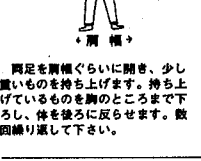 肩幅
両足を肩幅ぐらいに開き、少し
重いものを持ち上げます。持ち上
げているものを胸のところまで下
ろし、体を後ろに反らせます。数
回繰り返して下さい。